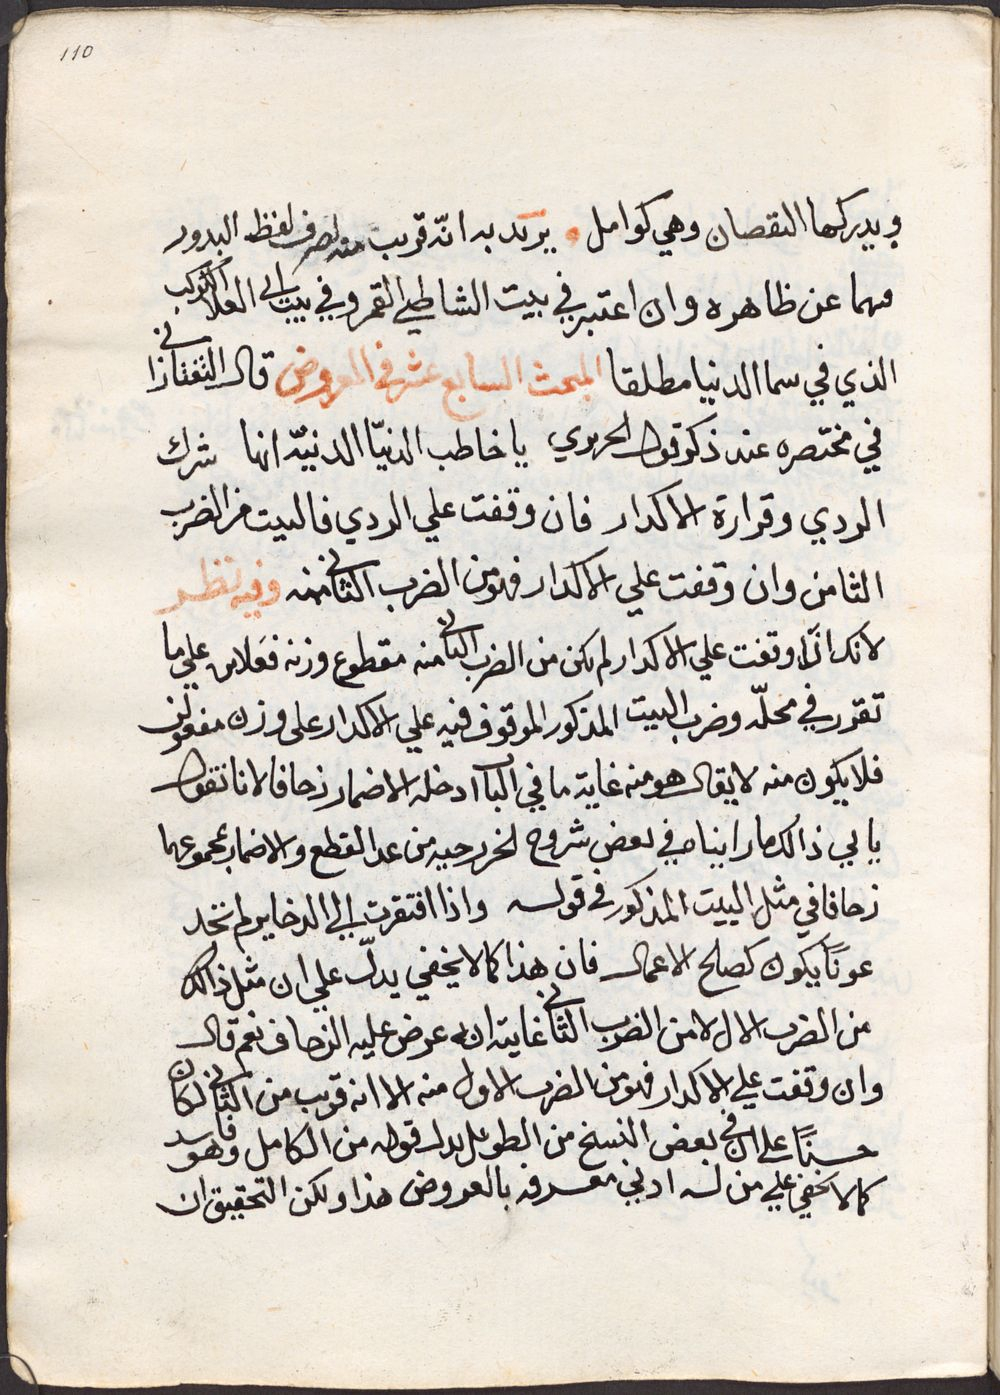 110
ويدركها النقصان وهي كوامل . يرتد به انّه قريب منه لصرف لفظ البدور
مهما عن ظاهره وان اعتبر في بيت الشاطبي القمر وفي بيت ابي العلا الكوكب
الذي في سما الدنيا مطلقا المبحث السابع عشر في العروض قال التفتازاني
في مختصره عند ذكر قول الحريري يا خاطب الدنيّا الدنيّه انها شرك
الردي وقرارة الاكدار فان وقفت علي الردي فالبيت من الضرب
الثامن وان وقفت علي الاكدار فهو من الضرب الثاني منه وفيه نظر
لانك اذا وقفت علي الاكدار لم يكن من الضرب الثاني منه مقطوع وزنه فعلاتن علي ما
تقرر في محلّه وضرب البيت المذكور الموقوف فيه علي الاكدار على وزن مفعولن
فلا يكون منه لا يقال هو منه غاية ما في الباب ادخله الاضمار زحافا لانا نقول
يابي ذالك ما رايناه في بعض شروح الخزرجيه من عد القطع والاضمار بمجموعهما
زحافا في مثل البيت المذكور في قوله واذا افتقرت الي الدخاير لم تجد
عونًا يكون كصلح الاعمال فان هذا كما لا يخفي يدلّ علي ان مثل ذالك
من الضرب الال لا من الضرب الثاني غايته انه عرض عليه الزحاف نعم قال
وان وقفت علي الاكدار فهو من الضرب الاول منه الا انه قريب من الثاني لكان
حسنًا على ان في بعض النسخ من الطويل بدل قوله من الكامل وهو فاسد
كما لا يخفي علي من له ادني معرفه بالعروض هذا ولكن التحقيق ان